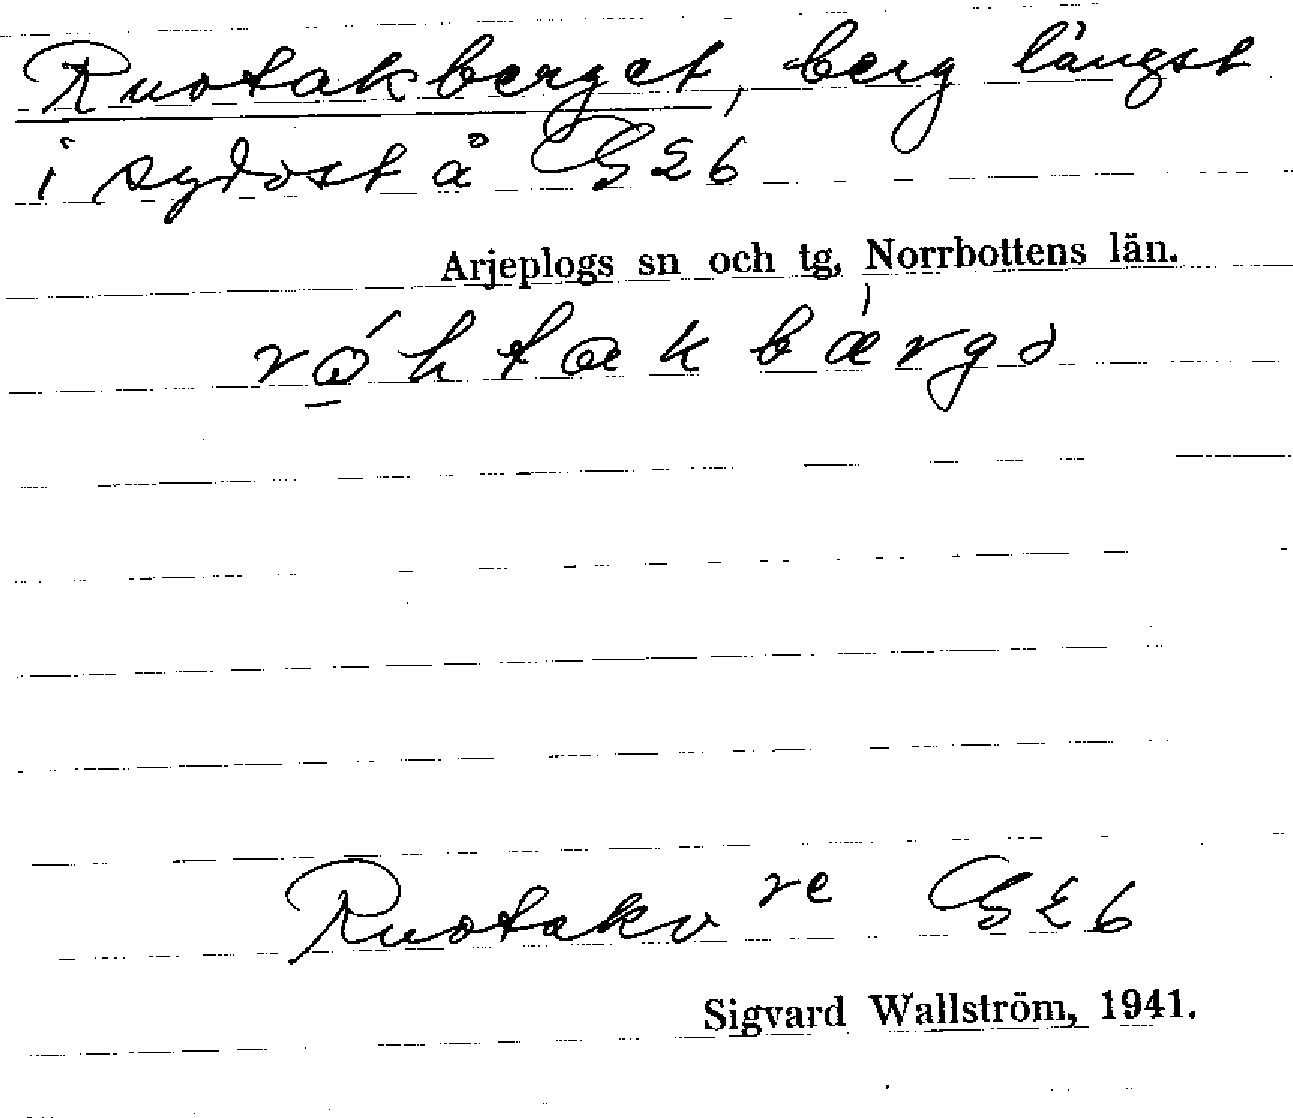 Ruotakberget, berg längst
i sydost å GE6
Arjeplogs sn och tg, Norrbottens län.
Ruotakv re GE6
Sigvard Wallström, 1941.